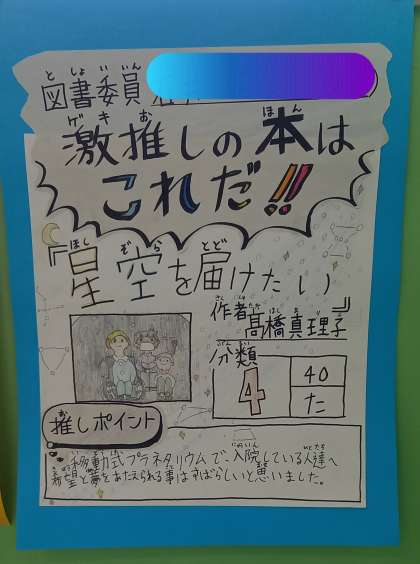 図書委員
激推しの本は
これだ!!
『星空を届けたい』
作者 髙橋真理子
分類
4
40
た
推しポイント
移動式プラネタリウムで、入院している人達へ
希望と夢をあたえられる事はすばらしいと思いました。